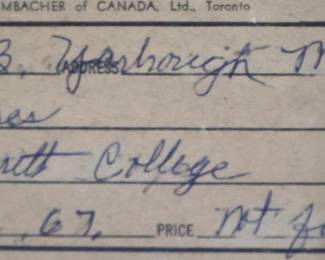 MBACHER of CANADA, Ltd., Toronto
B. Yarborough M
ADDRESS
es
ett College
, 67, PRICE Not fo